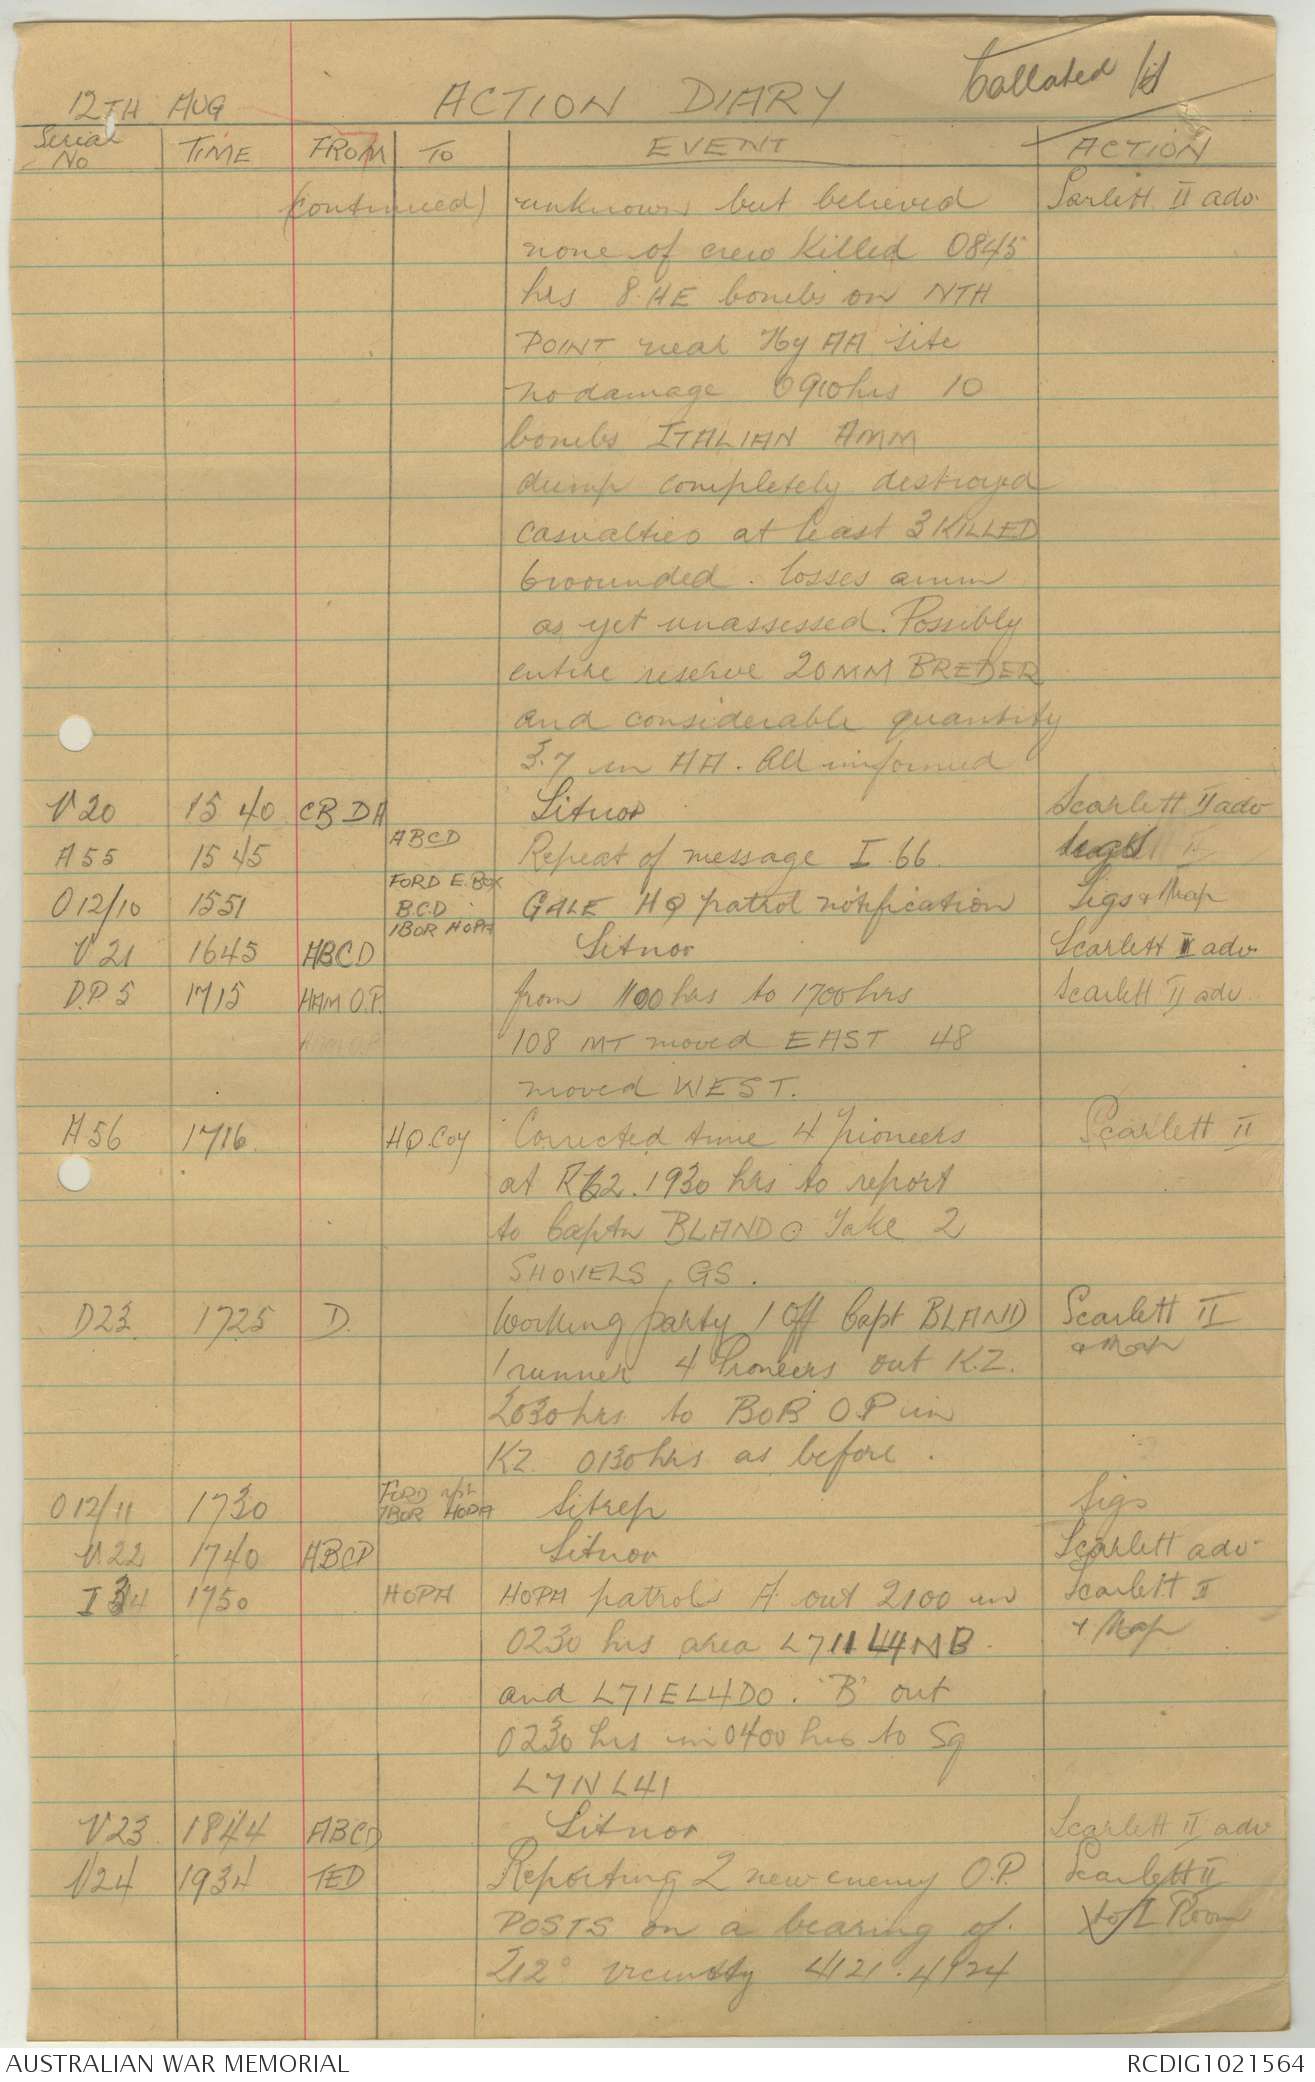 12TH AUG ACTION DIARY Collated
Serial No TIME FROM TO EVENT ACTION
(continued) unknown but believed Sarlett II adv.
none of crew killed 0845
hrs 8 HE bombs on NTH
POINT near Hy AA site
no damage 0910hrs 10
bombs ITALIAN AMM
dump completely destroyed
casualties at least 3 KILLED
6 wounded. losses amm
as yet unassessed. Possibly
entire reserve 20MM BREDER
and considerable quantity
3.7 in AA. All informed
V20 1540 CBDA Sitnor Scarlett II adv
A55 1545 ABCD Repeat of message I.66.
O12/10 1551 FORD E. BOX B.C.D 1BOR HOPA GALE HQ patrol notification Sigs & Map
V21 1645 ABCD Sitnor Scarlett II adv.
D.P.5 1715 HAM O.P. from 1100hrs to 1700hrs Scarlett II adv.
108 MT moved EAST 48
moved WEST.
A56 1716 HQ.Coy Corrected time 4 Pioneers Scarlett II
at R62. 1930 hrs to report
to Captn BLAND Take 2
SHOVELS, GS.
D23 1725 D. Working party 1 Off Capt BLAND Scarlett II
1 runner 4 Pioneers out KZ. & Map
2030hrs to BOB O.P in
KZ. 0130hrs as before.
O12/11 1730 FORD 1BOR HOPA Sitrep Sigs
V.22 1740 ABCD Sitnor Scarlett adv.
I 1750 HOPA HOPA patrols A out 2100 in Scarlett II
0230 hrs area L711L4NB. & Map
and L71EL4DO. 'B' out
0230 hrs in 0400 hrs to Sq
L7NL41
V23 1844 ABCD Sitnor Scarlett II adv
V24 1934 TED Reporting 2 new enemy O.P. Scarlett II
POSTS on a bearing of. to I Room
212° vicinity 4121.4124
AUSTRALIAN WAR MEMORIAL RCDIG1021564